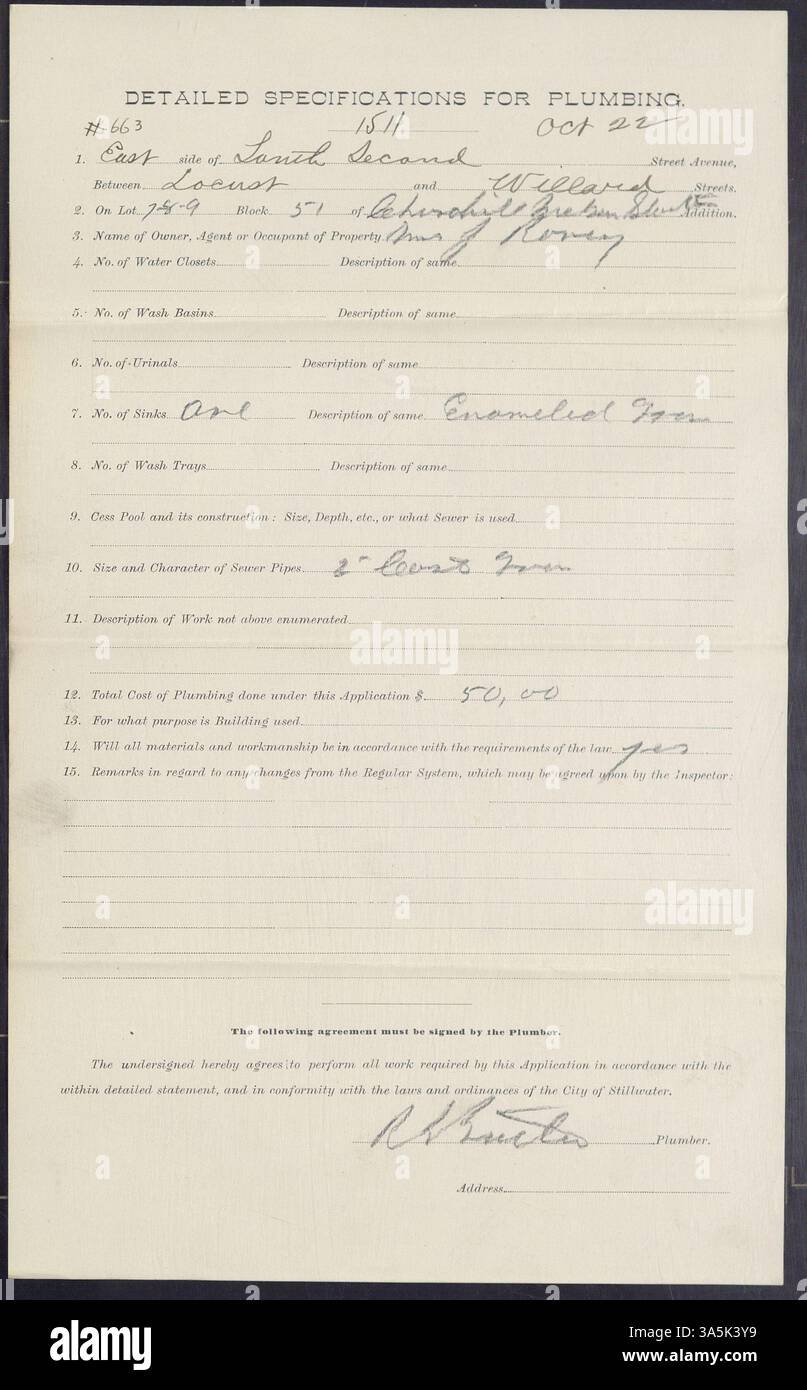 DETAILED SPECIFICATIONS FOR PLUMBING.
# 663 1511 Oct 22
1. East side of South Second Street Avenue,
Between Locust and Willard Streets.
2. On Lot 7-8-9 Block 51 of Churchill Addition.
3. Name of Owner, Agent or Occupant of Property Mrs J
4. No. of Water Closets Description of same
5. No. of Wash Basins Description of same
6. No. of Urinals Description of same
7. No. of Sinks One Description of same Enameled Iron
8. No. of Wash Trays Description of same
9. Cess Pool and its construction: Size, Depth, etc., or what Sewer is used
10. Size and Character of Sewer Pipes Cast Iron
11. Description of Work not above enumerated
12. Total Cost of Plumbing done under this Application $ 50,00
13. For what purpose is Building used
14. Will all materials and workmanship be in accordance with the requirements of the law yes
15. Remarks in regard to any changes from the Regular System, which may be agreed upon by the Inspector:
The following agreement must be signed by the Plumber.
The undersigned hereby agrees to perform all work required by this Application in accordance with the
within detailed statement, and in conformity with the laws and ordinances of the City of Stillwater.
Plumber.
Address
alamy
Image ID: 3A5K3Y9
www.alamy.com